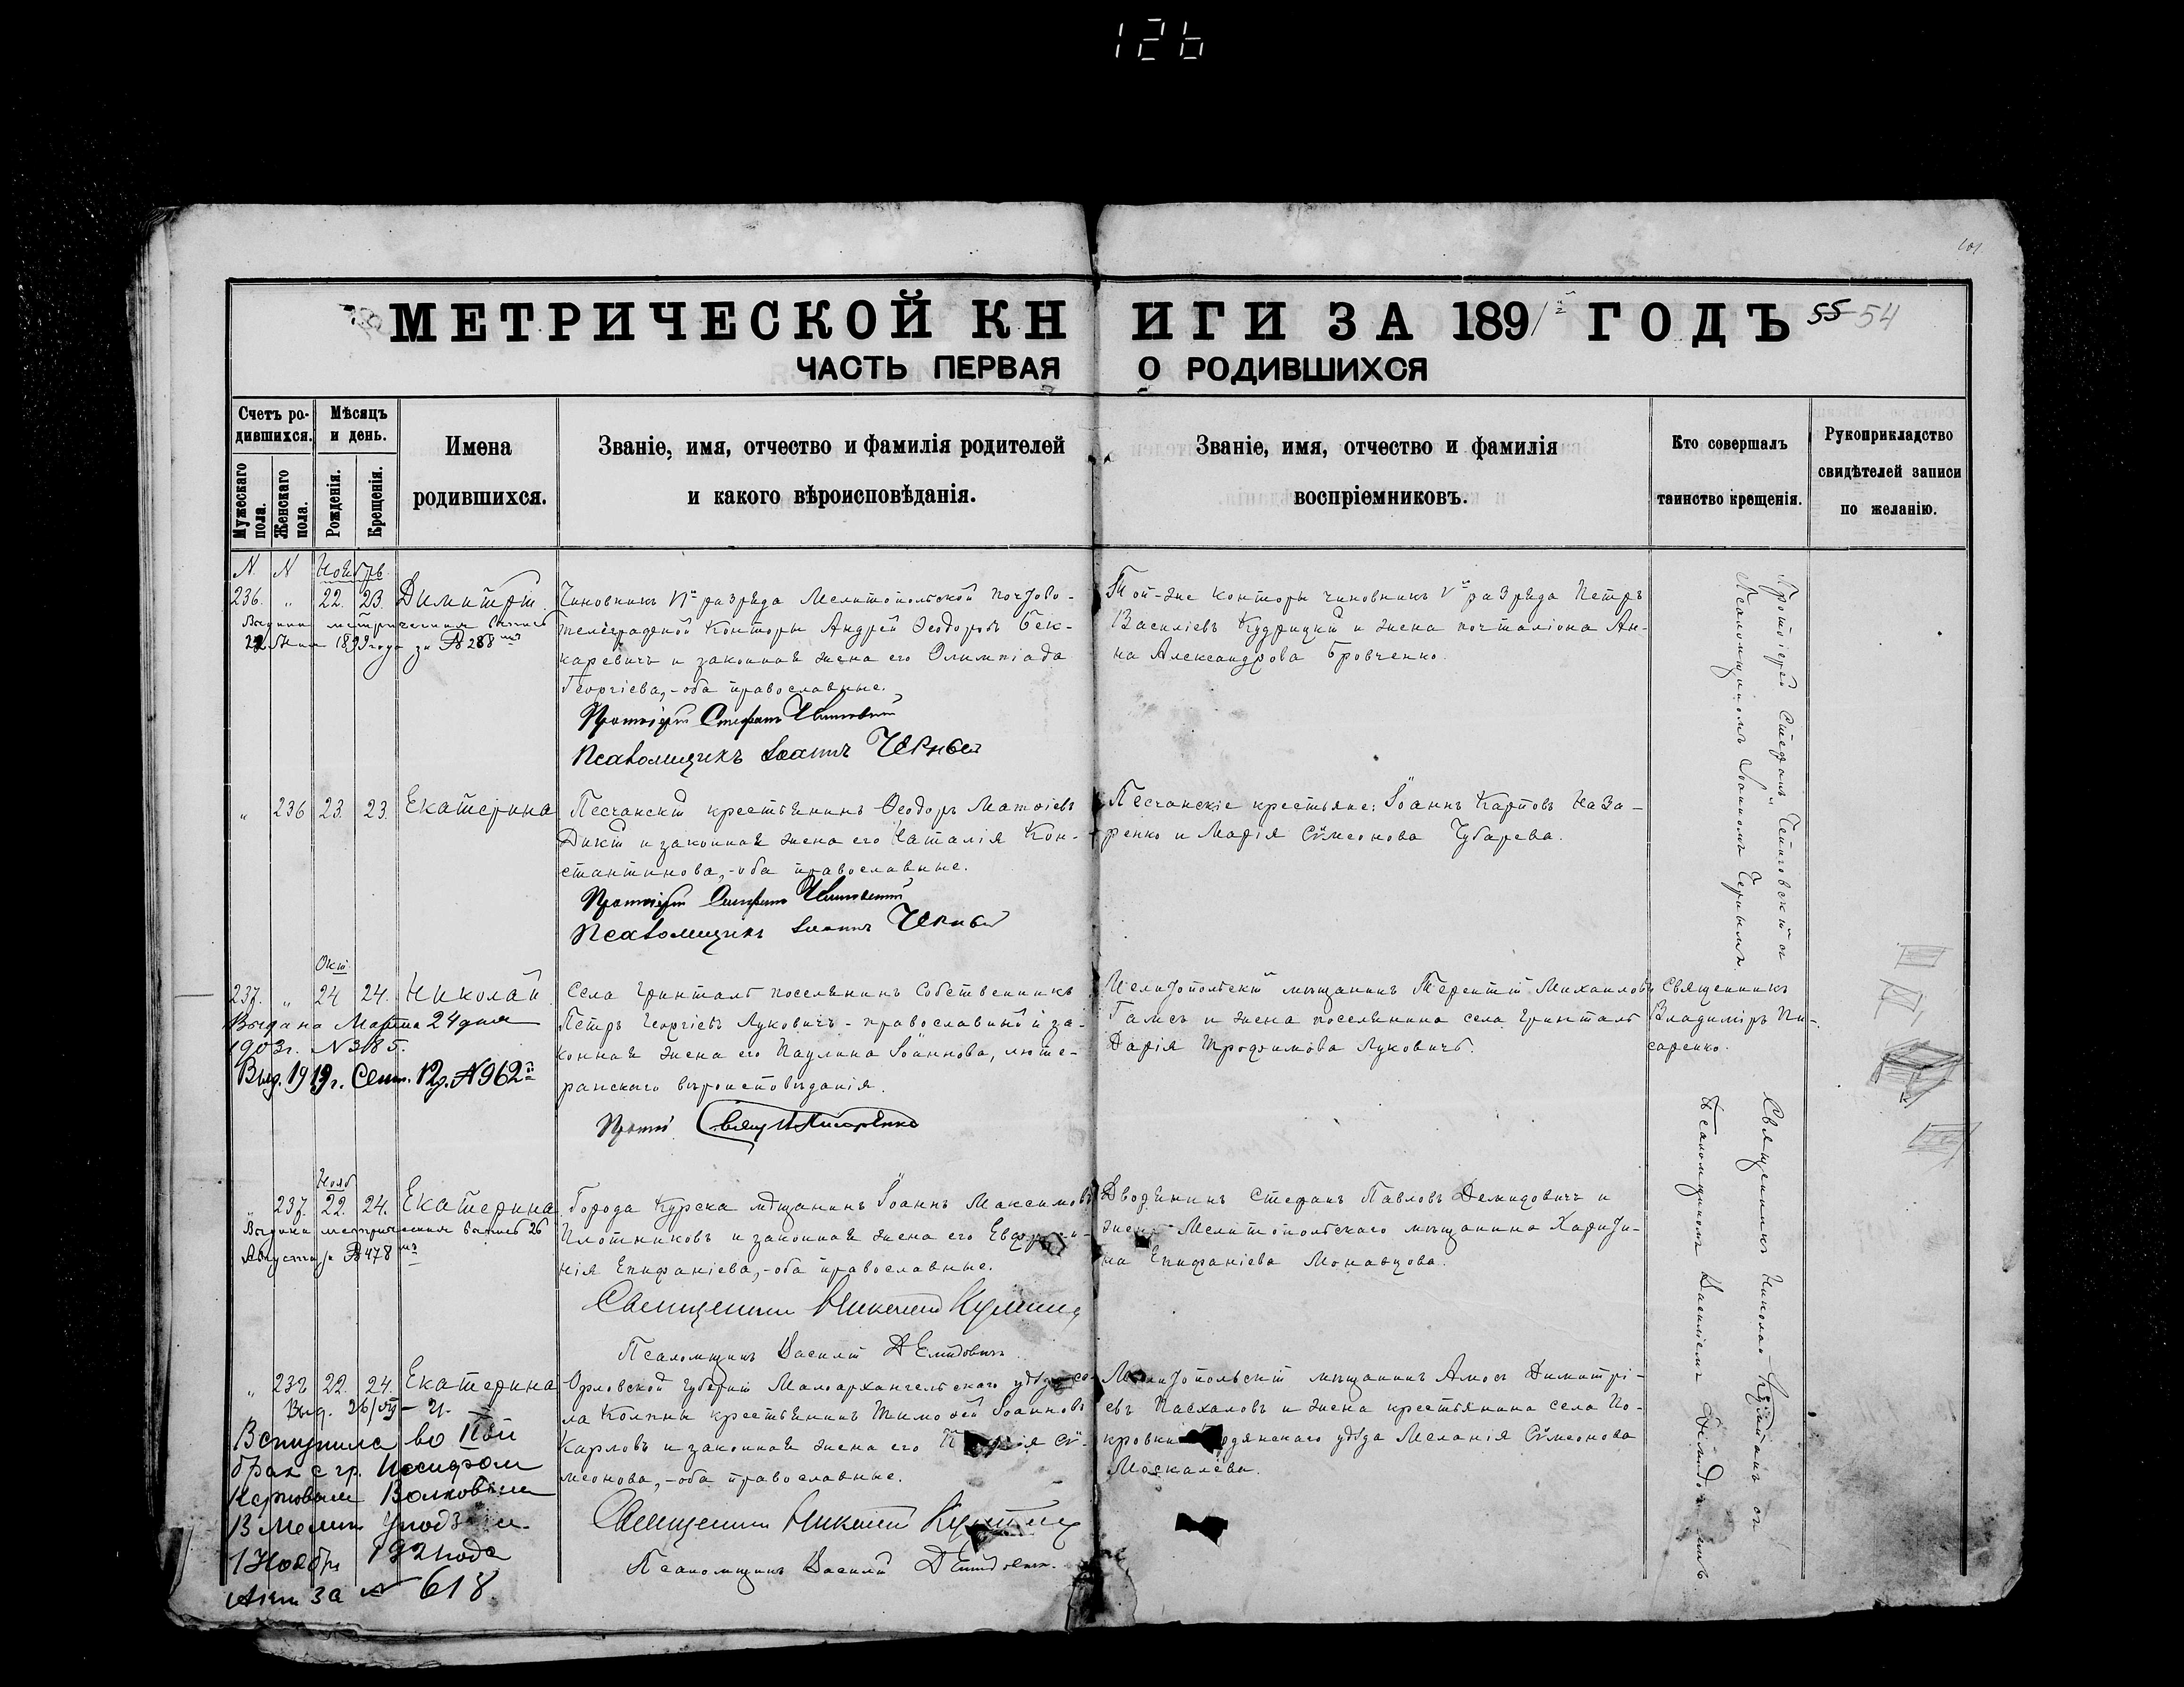 126
101
МЕТРИЧЕСКОЙ КНИГИ ЗА 1891й ГОДЪ 55 54
ЧАСТЬ ПЕРВАЯ О РОДИВШИХСЯ
Счетъ ро-
дившихся.
Мужескаго пола.
Женскаго пола.
Мѣсяцъ
и день.
Рожденія.
Крещенія.
Имена
родившихся.
Званіе, имя, отчество и фамилія родителей
и какого вѣроисповѣданія.
Званіе, имя, отчество и фамилія
воспріемниковъ.
Кто совершалъ
таинство крещенія.
Рукоприкладство
свидѣтелей записи
по желанію.
N. N Ноябрь
236. „ 22. 23. Димитрій.
Выдана метрическая выпись
1899 года за № 288
Чиновникъ VI разряда Мелитопольской почтово-
телеграфной конторы Андрей Ѳеодоровъ Бек-
каревичъ и законная жена его Олимпіада
Георгіева,-оба православные.
Протоіерей Стефанъ
Псаломщикъ Іоаннъ Черный
Той-же конторы чиновникъ V разряда Петръ
Василіевъ Кудрицкій и жена почталіона Ан-
на Александрова Бровченко.
Протоіерей Стефанъ съ
Псаломщикомъ Іоанномъ Чернымъ.
„ 236 23. 23. Екатерина
Песчанскій крестьянинъ Ѳеодоръ Матѳіевъ
Дикій и законная жена его Наталія Кон-
стантинова,-оба православные.
Протоіерей Стефанъ
Псаломщикъ Іоаннъ Черный
Песчанскіе крестьяне: Іоаннъ Карповъ Наза-
ренко и Марія Сѵмеонова Чубарева.
Окт.
237. „ 24 24. Николай
Выдана Марта 24 дня
1903 г. N 3185.
Выд. 1919 г. Сент. 12 д. № 962
Села Гринталь поселянинъ собственникъ
Петръ Георгіевъ Луковичъ - православный и за-
конная жена его Паулина Іоаннова, люте-
ранскаго вѣроисповѣданія.
Свящ. Писаренко
Мелитопольскій мѣщанинъ Терентій Михаиловъ
и жена поселянина села Гринталь
Дарія Трофимова Луковичъ.
Священникъ
Владиміръ Пи-
саренко.
Нояб.
„ 237. 22. 24. Екатерина
Выдана метрическая выпись 26
Августа № 478
Города Курска мѣщанинъ Іоаннъ Максимовъ
Плотниковъ и законная жена его
нія Епифаніева,-оба православные.
Священникъ Николай
Псаломщикъ Василій Демидовичъ
Дворянинъ Стефанъ Павловъ Демидовичъ и
жена Мелитопольскаго мѣщанина Харити-
на Епифаніева
Священникъ Николай съ
Псаломщикомъ Василіемъ Демидовичемъ
„ 238 22. 24. Екатерина
Выд. 26/VII - 21.
Вступила во II-ой
брак с гр. Иосифом
Карповым Волковым
В Мелит.
1 Ноября
Акт за № 618.
Орловской губерніи Малоархангельскаго уѣзда се-
ла Колпны крестьянинъ Тимоѳей Іоанновъ
Карловъ и законная жена его Сѵ-
меонова,-оба православные.
Священникъ Николай
Псаломщикъ Василій Демидовичъ.
Мелитопольскій мѣщанинъ Амосъ Димитрі-
евъ Пасхаловъ и жена крестьянина села По-
кровки уѣзда Меланія Сѵмеонова
Москалева.